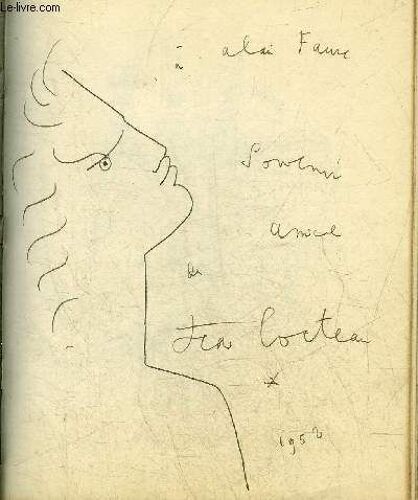 Le-livre.com
à alain Faure
Souvenir
amical
de
Jean Cocteau
*
1952